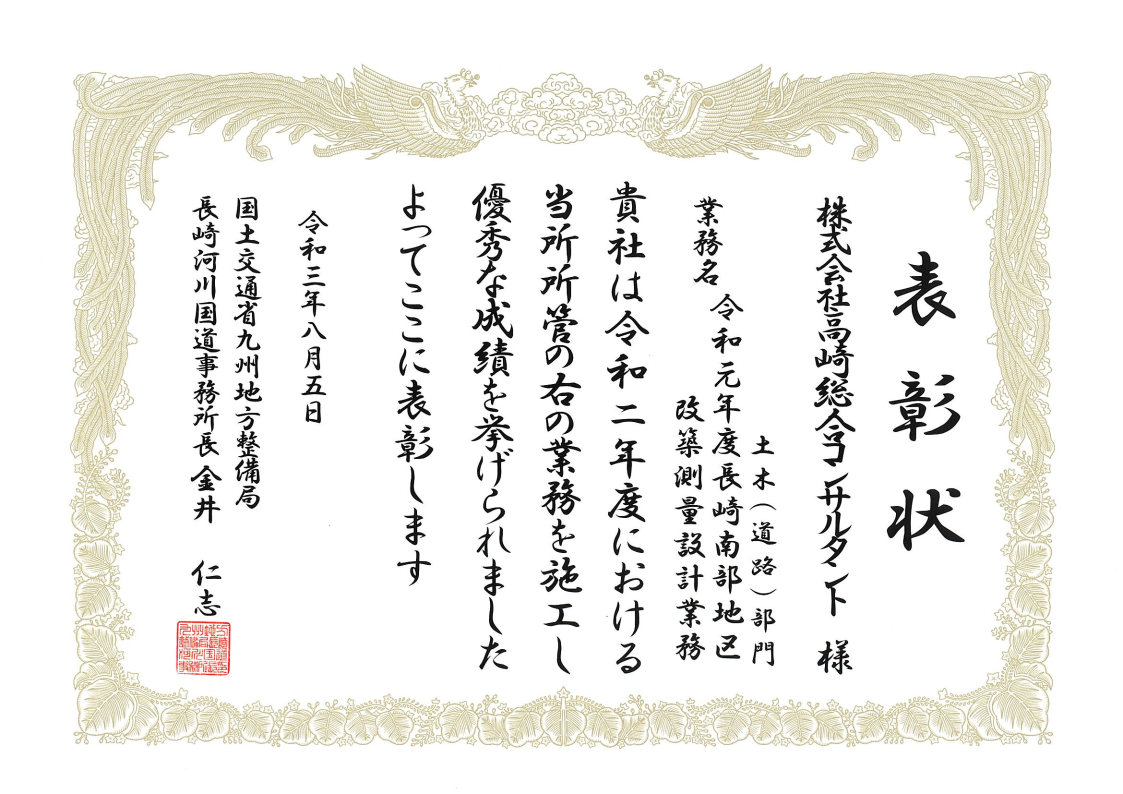 表彰状
株式会社高崎総合コンサルタント 様
土木（道路）部門
業務名 令和元年度長崎南部地区
改築測量設計業務
貴社は令和二年度における
当所所管の右の業務を施工し
優秀な成績を挙げられました
よってここに表彰します
令和三年八月五日
国土交通省九州地方整備局
長崎河川国道事務所長 金井 仁志